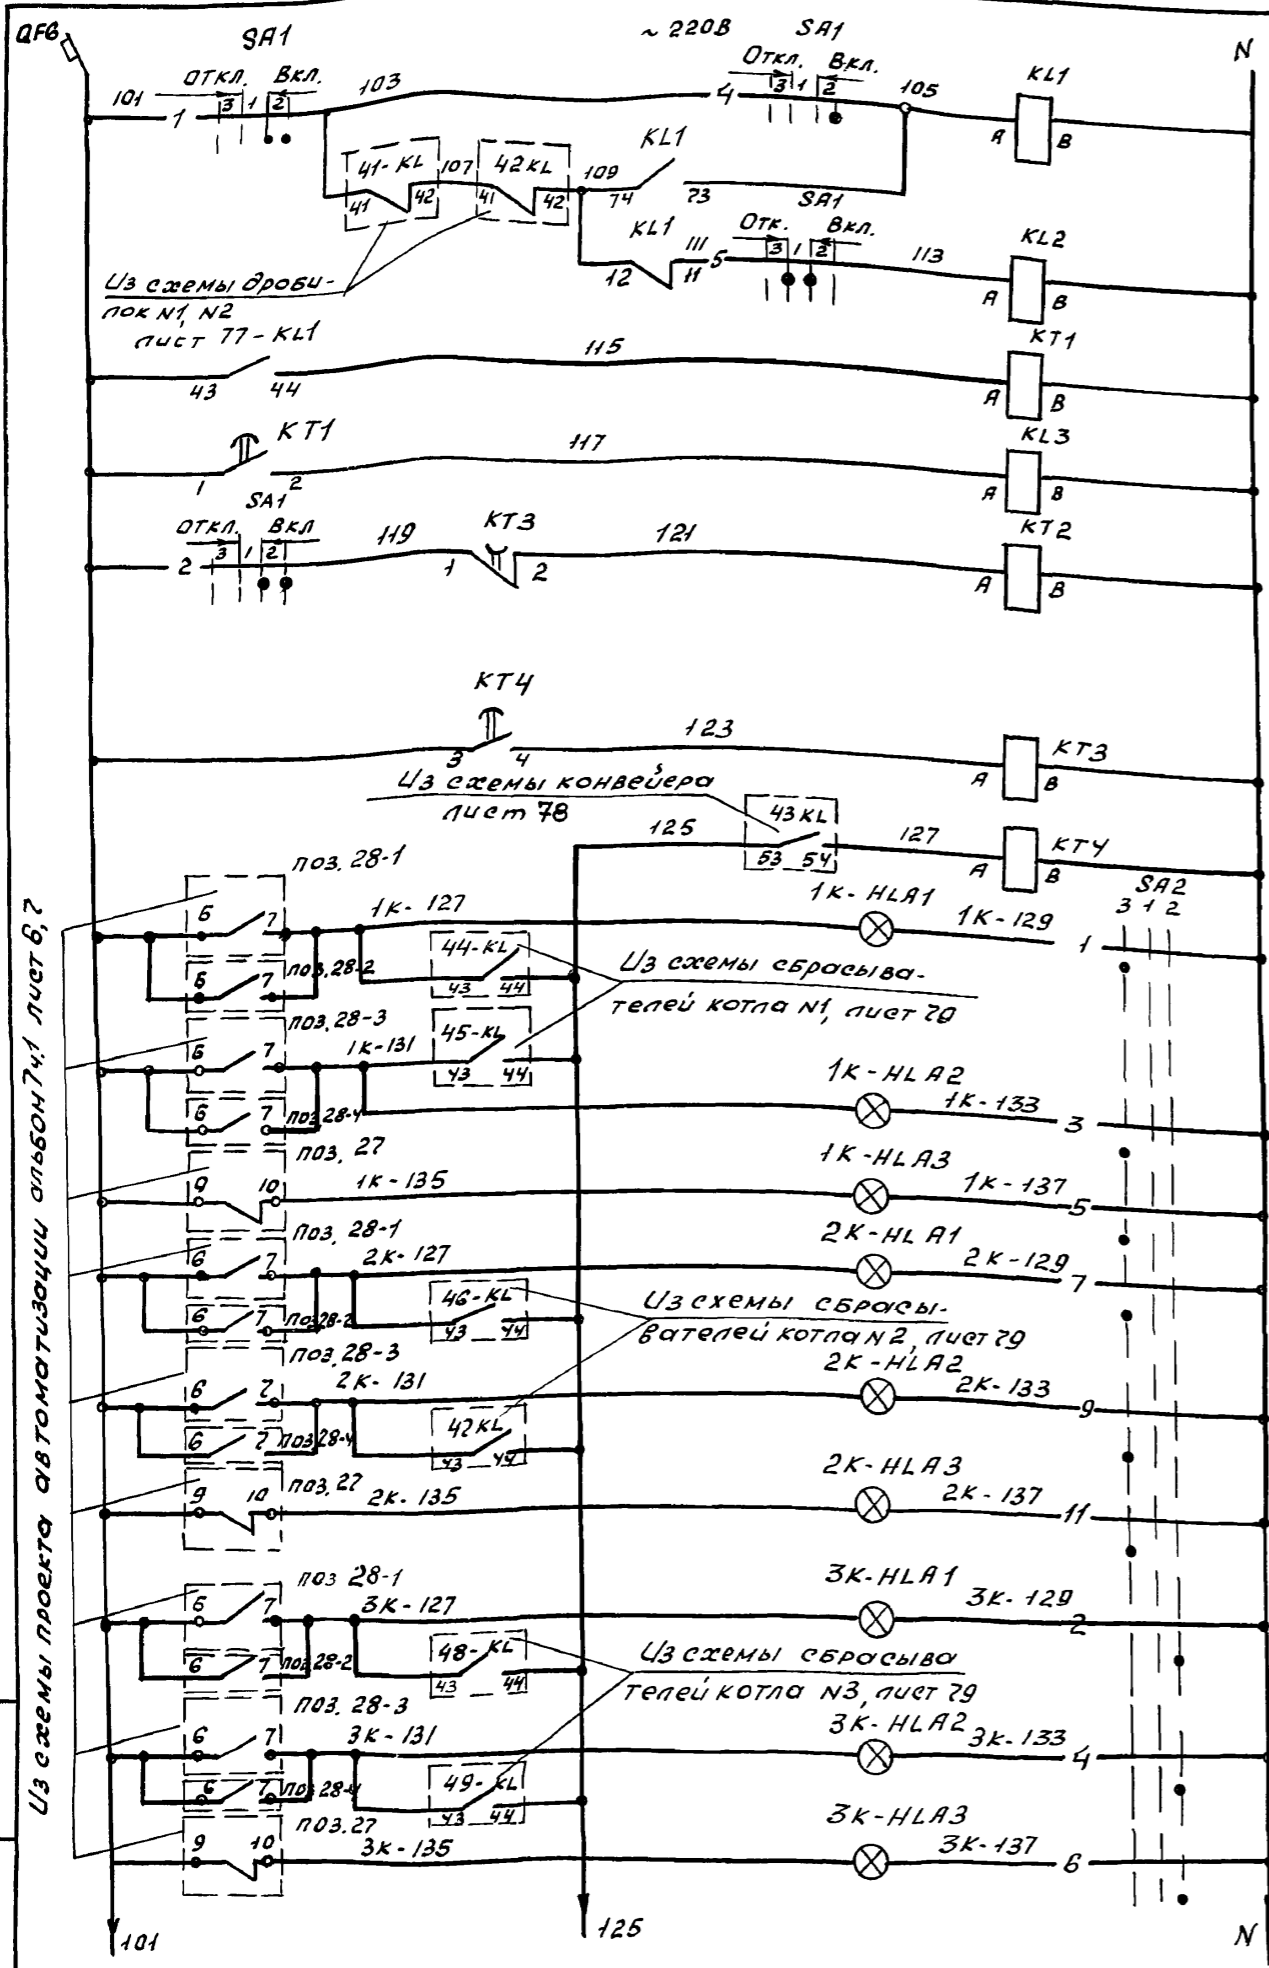 QF6
SA1
~ 220В
SA1
N
Откл. Вкл.
Откл. Вкл.
KL1
101
1
3 1 2
103
4
3 1 2
105
A B
41-KL
107
42KL
109
KL1
41 42
41 42
74 73
SA1
KL1
111
Отк. Вкл.
KL2
12
11
5
3 1 2
113
A B
Из схемы дроби-
лок N1, N2
лист 77 - KL1
115
KT1
43 44
A B
KT1
117
KL3
1 2
A B
SA1
Откл. Вкл
119
KT3
121
KT2
2
3 1 2
1 2
A B
KT4
123
KT3
3 4
A B
Из схемы конвейера
лист 78
43KL
125
53 54
127
KT4
A B
SA2
3 1 2
Из схемы проекта автоматизации альбом 7 ч.1 лист 6,7
поз. 28-1
6 7
1К-127
1К-HLA1
1К-129
1
6 7
поз. 28-2
44-KL
43 44
Из схемы сбрасыва-
телей котла N1, лист 79
поз. 28-3
6 7
1К-131
45-KL
43 44
1К-HLA2
1К-133
3
6 7
поз. 28-4
поз. 27
9 10
1К-135
1К-HLA3
1К-137
5
поз. 28-1
6 7
2К-127
2К-HLA1
2К-129
7
6 7
поз 28-2
46-KL
43 44
Из схемы сбрасы-
вателей котла N2, лист 79
поз. 28-3
6 7
2К-131
2К-HLA2
2К-133
9
6 7
поз 28-4
47KL
43 44
поз. 27
9 10
2К-135
2К-HLA3
2К-137
11
поз 28-1
6 7
3К-127
3К-HLA1
3К-129
2
6 7
поз 28-2
48-KL
43 44
Из схемы сбрасыва
телей котла N3, лист 79
поз. 28-3
6 7
3К-131
3К-HLA2
3К-133
4
6 7
поз 28-4
49-KL
43 44
поз. 27
9 10
3К-135
3К-HLA3
3К-137
6
101
125
N